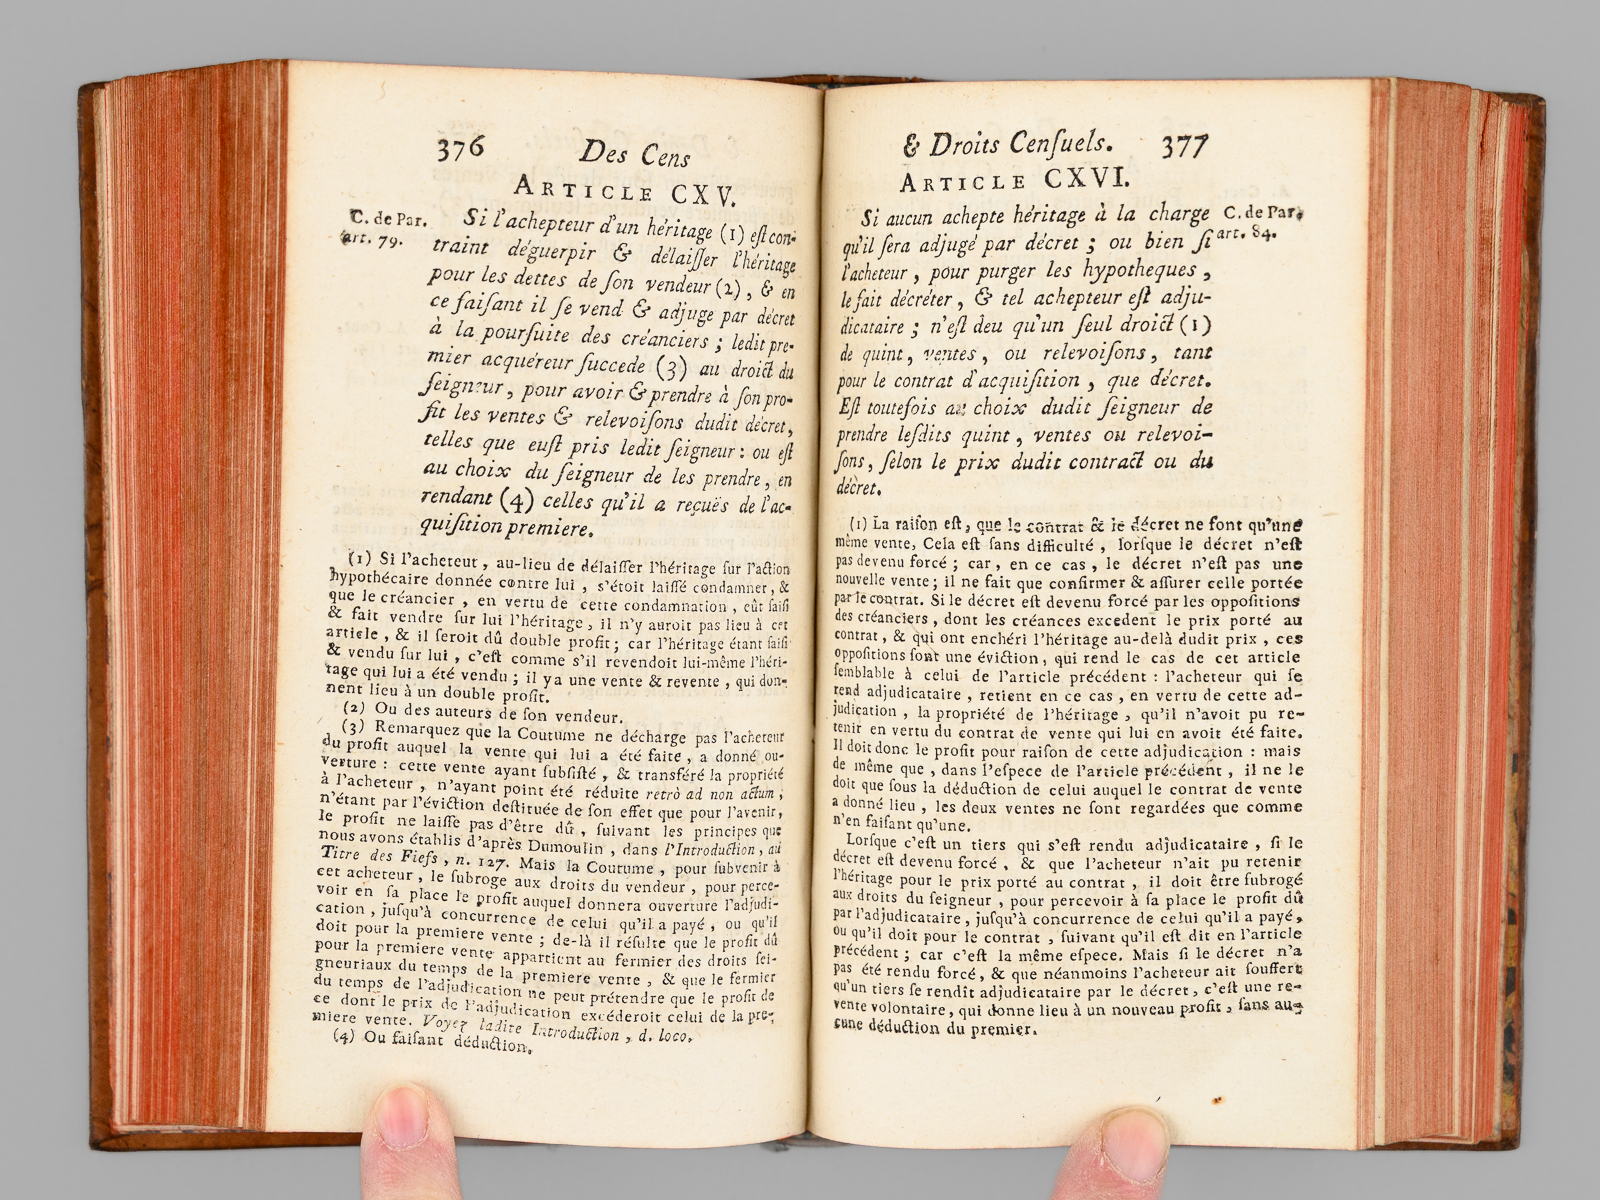 376 Des Cens
ARTICLE CXV.
C. de Par.
art. 79.
Si l'achepteur d'un héritage (1) eſt con-
traint déguerpir & délaiſſer l'héritage
pour les dettes de ſon vendeur (2), & en
ce faiſant il ſe vend & adjuge par décret
à la pourſuite des créanciers ; ledit pre-
mier acquéreur ſuccede (3) au droict du
ſeigneur, pour avoir & prendre à ſon pro-
fit les ventes & relevoiſons dudit décret,
telles que euſt pris ledit ſeigneur : ou eſt
au choix du ſeigneur de les prendre, en
rendant (4) celles qu'il a reçuës de l'ac-
quiſition premiere.
(1) Si l'acheteur, au-lieu de délaiſſer l'héritage ſur l'action
hypothécaire donnée contre lui, s'étoit laiſſé condamner, &
que le créancier, en vertu de cette condamnation, eût ſaiſi
& fait vendre ſur lui l'héritage, il n'y auroit pas lieu à cet
article, & il ſeroit dû double profit; car l'héritage étant ſaiſi
& vendu ſur lui, c'eſt comme s'il revendoit lui-même l'héri-
tage qui lui a été vendu ; il ya une vente & revente, qui don-
nent lieu à un double profit.
(2) Ou des auteurs de ſon vendeur.
(3) Remarquez que la Coutume ne décharge pas l'acheteur
du profit auquel la vente qui lui a été faite, a donné ou-
verture : cette vente ayant ſubſiſté, & transféré la propriété
à l'acheteur, n'ayant point été réduite retrò ad non actum ;
n'étant par l'éviction deſtituée de ſon effet que pour l'avenir,
le profit ne laiſſe pas d'être dû, ſuivant les principes que
nous avons établis d'après Dumoulin, dans l'Introduction, au
Titre des Fiefs, n. 127. Mais la Coutume, pour ſubvenir à
cet acheteur, le ſubroge aux droits du vendeur, pour perce-
voir en ſa place le profit auquel donnera ouverture l'adjudi-
cation, juſqu'à concurrence de celui qu'il a payé, ou qu'il
doit pour la premiere vente ; de-là il réſulte que le profit dû
pour la premiere vente appartient au fermier des droits ſei-
gneuriaux du temps de la premiere vente, & que le fermier
du temps de l'adjudication ne peut prétendre que le profit de
ce dont le prix de l'adjudication excéderoit celui de la pre-
miere vente. Voyez ladite Introduction, d. loco.
(4) Ou faiſant déduction.
& Droits Cenſuels. 377
ARTICLE CXVI.
C. de Par.
art. 84.
Si aucun achepte héritage à la charge
qu'il ſera adjugé par décret ; ou bien ſi
l'acheteur, pour purger les hypotheques,
le fait décréter, & tel achepteur eſt adju-
dicataire ; n'eſt deu qu'un ſeul droict (1)
de quint, ventes, ou relevoiſons, tant
pour le contrat d'acquiſition, que décret.
Eſt toutefois au choix dudit ſeigneur de
prendre leſdits quint, ventes ou relevoi-
ſons, ſelon le prix dudit contract ou du
décret.
(1) La raiſon eſt, que le contrat & le décret ne font qu'une
même vente, Cela eſt ſans difficulté, lorſque le décret n'eſt
pas devenu forcé ; car, en ce cas, le décret n'eſt pas une
nouvelle vente; il ne fait que confirmer & aſſurer celle portée
par le contrat. Si le décret eſt devenu forcé par les oppoſitions
des créanciers, dont les créances excedent le prix porté au
contrat, & qui ont enchéri l'héritage au-delà dudit prix, ces
oppoſitions ſont une éviction, qui rend le cas de cet article
ſemblable à celui de l'article précédent : l'acheteur qui ſe
rend adjudicataire, retient en ce cas, en vertu de cette ad-
judication, la propriété de l'héritage, qu'il n'avoit pu re-
tenir en vertu du contrat de vente qui lui en avoit été faite.
Il doit donc le profit pour raiſon de cette adjudication : mais
de même que, dans l'eſpece de l'article précédent, il ne le
doit que ſous la déduction de celui auquel le contrat de vente
a donné lieu, les deux ventes ne ſont regardées que comme
n'en faiſant qu'une.
Lorſque c'eſt un tiers qui s'eſt rendu adjudicataire, ſi le
décret eſt devenu forcé, & que l'acheteur n'ait pu retenir
l'héritage pour le prix porté au contrat, il doit être ſubrogé
aux droits du ſeigneur, pour percevoir à ſa place le profit dû
par l'adjudicataire, juſqu'à concurrence de celui qu'il a payé,
ou qu'il doit pour le contrat, ſuivant qu'il eſt dit en l'article
précédent ; car c'eſt la même eſpece. Mais ſi le décret n'a
pas été rendu forcé, & que néanmoins l'acheteur ait ſouffert
qu'un tiers ſe rendît adjudicataire par le décret, c'eſt une re-
vente volontaire, qui donne lieu à un nouveau profit, ſans au-
cune déduction du premier.